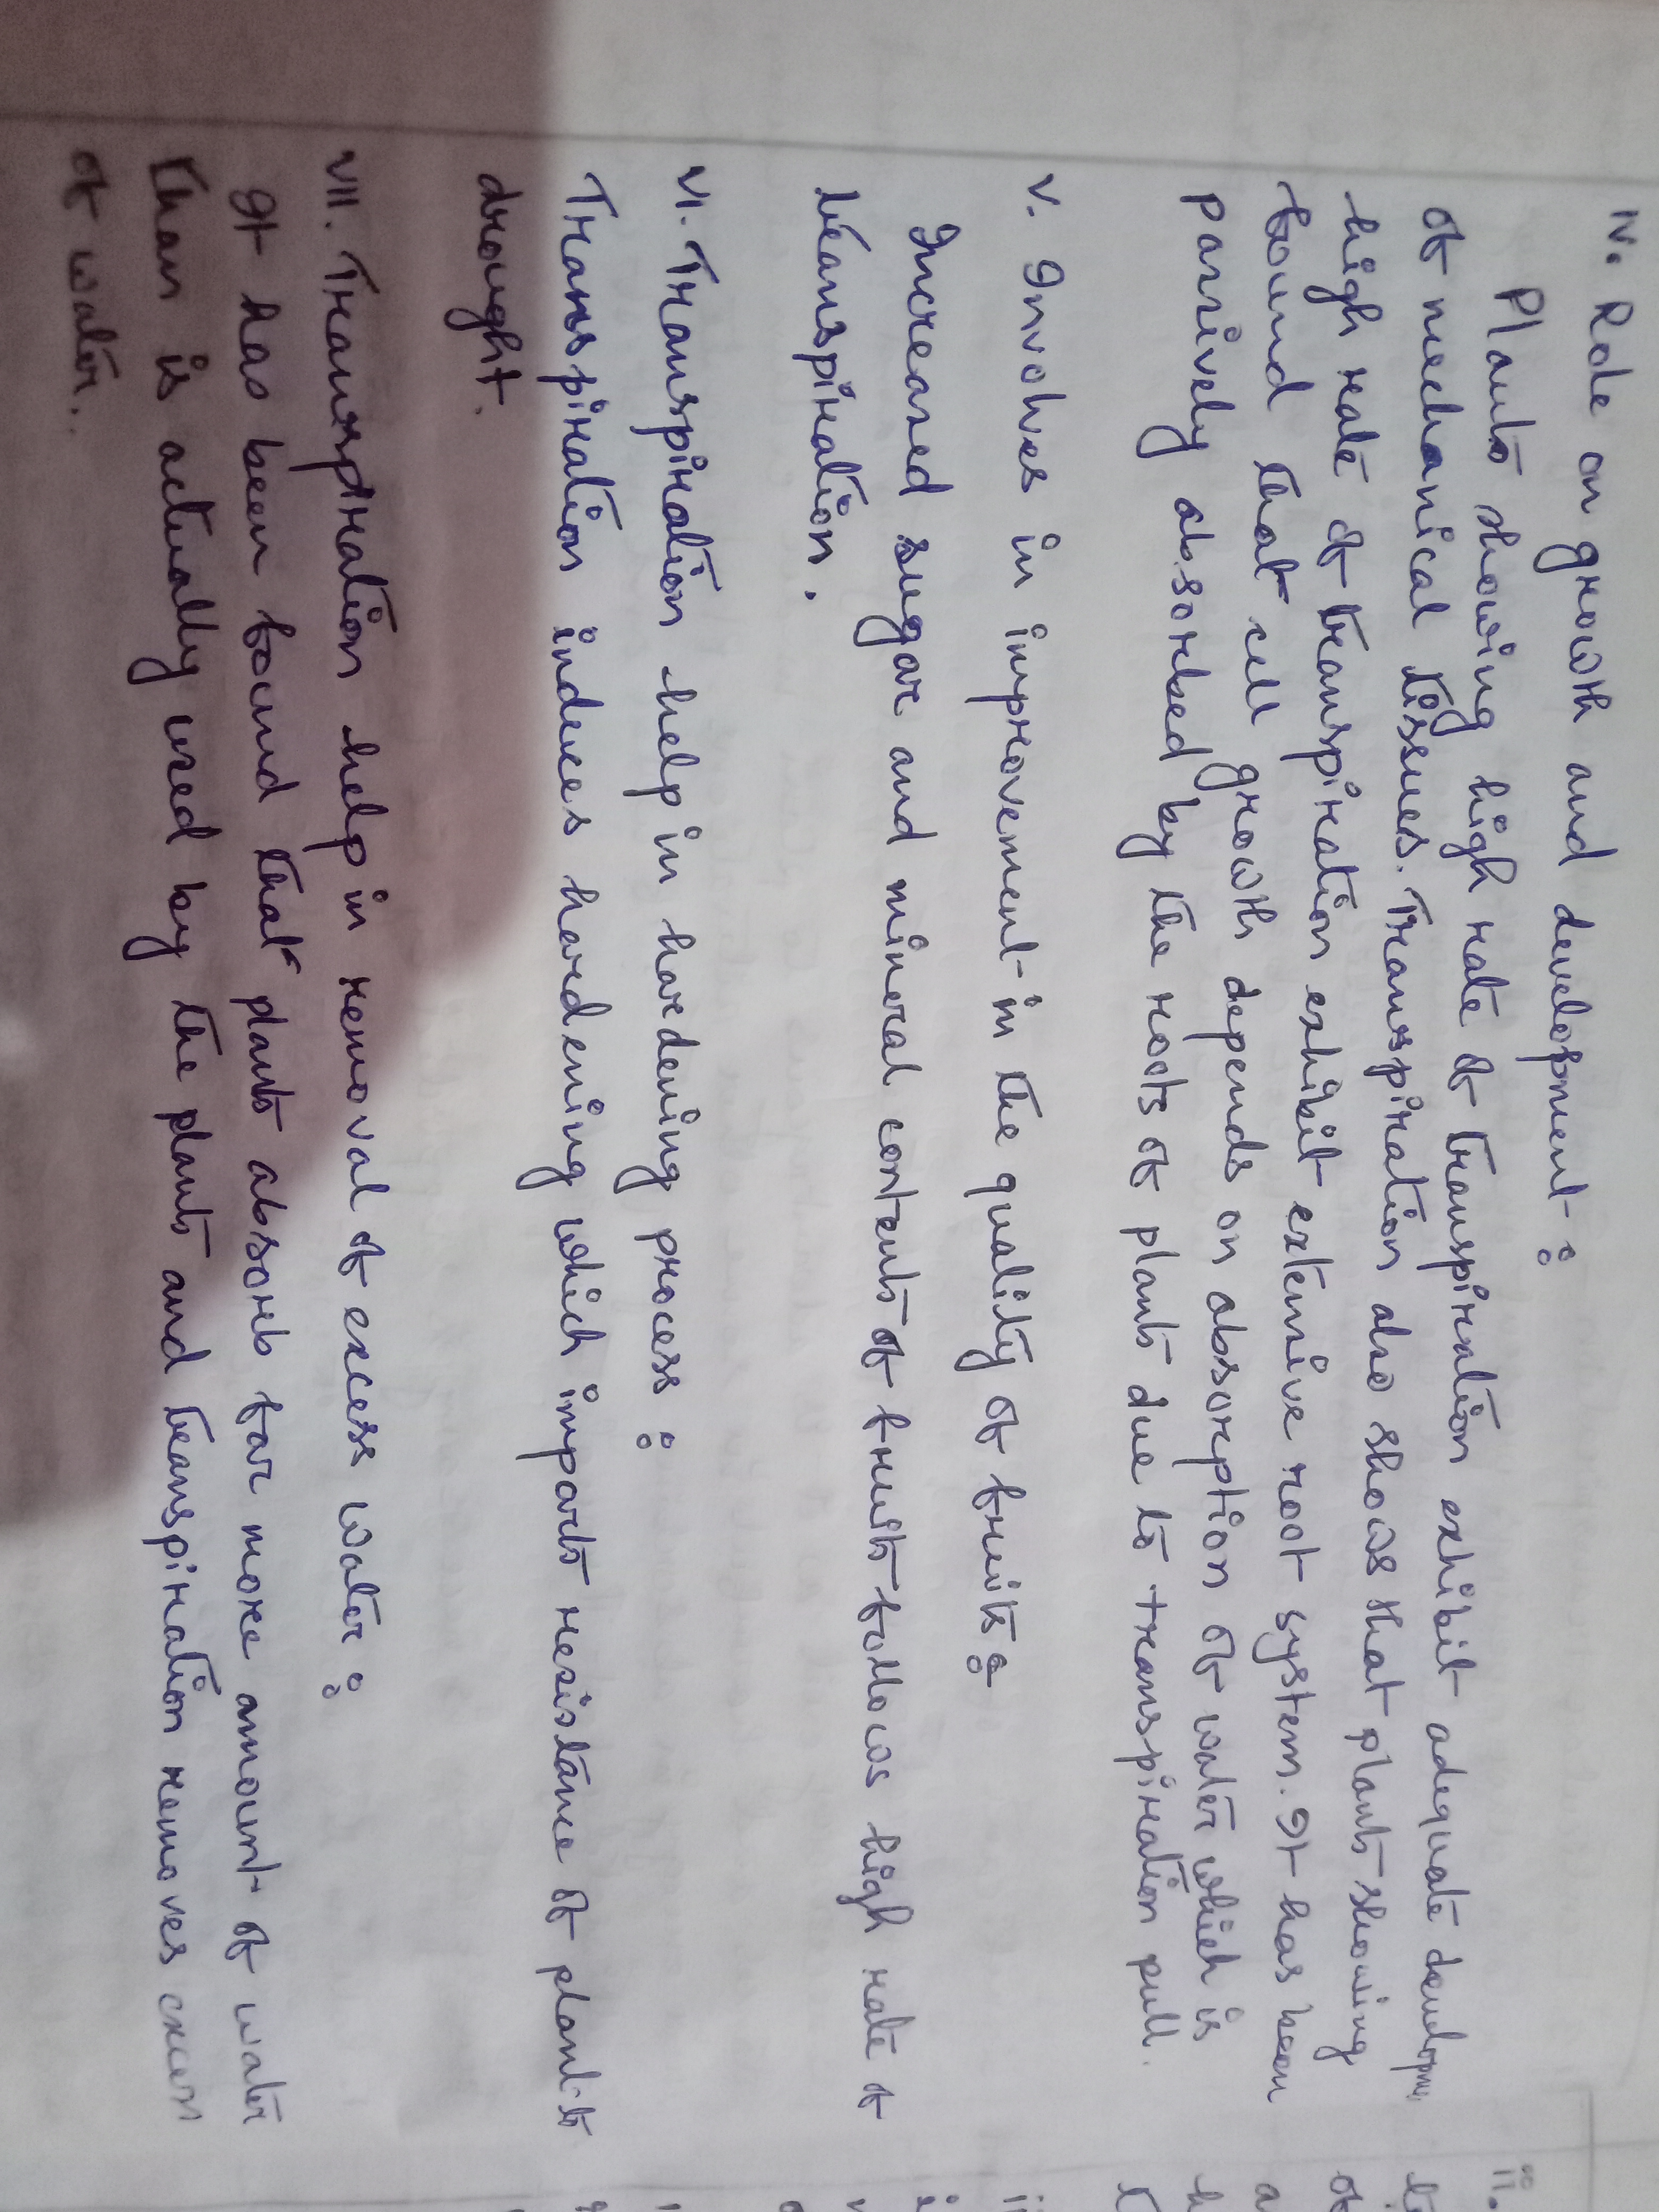 IV. Role on growth and development :
Plants showing high rate of transpiration exhibit adequate developm
of mechanical tissues. Transpiration also shows that plants showing
high rate of transpiration exhibit extensive root system. It has been
found that cell growth depends on absorption of water which is
passively absorbed by the roots of plants due to transpiration pull.
V. Involves in improvement in the quality of fruits :-
Increased sugar and mineral contents of fruits follows high rate of
transpiration.
VI. Transpiration help in hardening process :
Transpiration induces hardening which imparts resistance of plant to
drought.
VII. Transpiration help in removal of excess water :
It has been found that plants absorb far more amount of water
than is actually used by the plants and transpiration removes excess
of water.
ii.